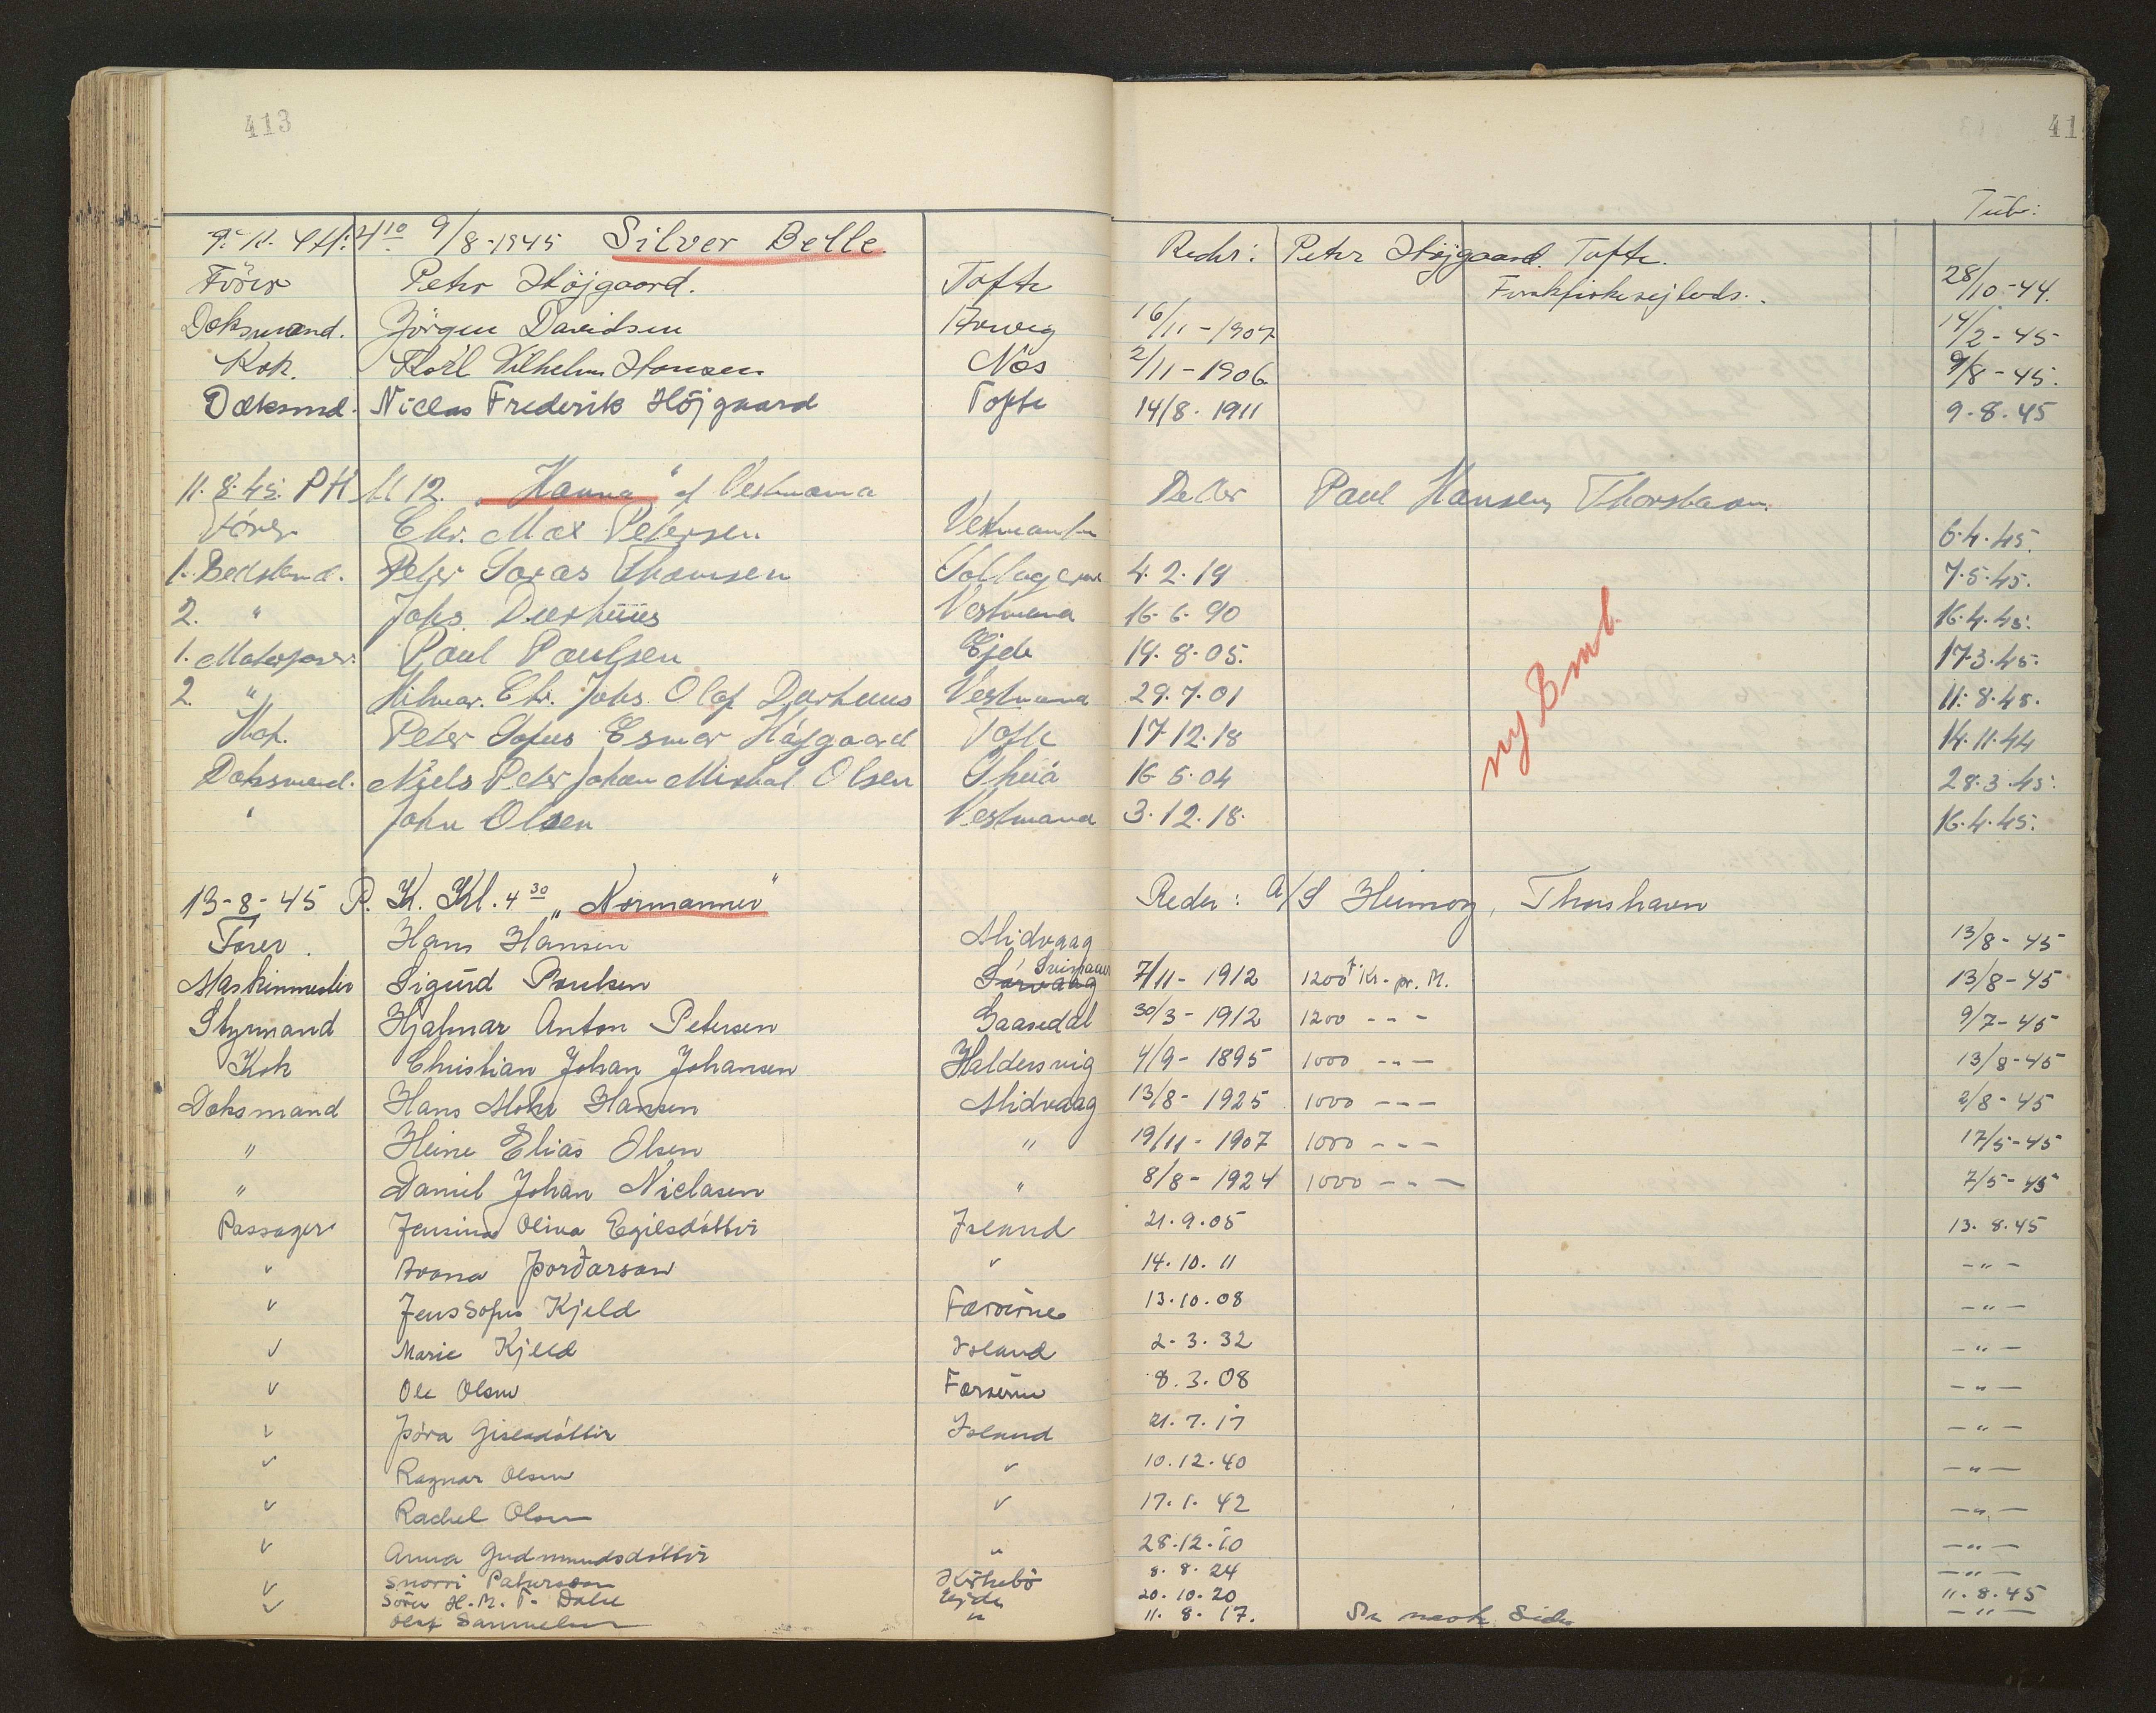 413
414
Tub:
4 10 9/8-1945 Silver Belle Reder: Peter Höjgaard. Tofte.
Förer Peter Höjgaard. Tofte 28/10-44.
Doksmand. Jörgen Davidsen 16/11-1907 14/2-45
Kok. Vilhelm Hansen Nös 2/11-1906 9/8-45.
Dæksmd. Niclas Frederik Höjgaard Tofte 14/8-1911 9.8.45
11.8.45. PH kl 12. „Hanna" af Vestmana Reder Paul Hansen, Thorshavn.
Förer Chr. Max Petersen Vestmanhn 6.4.45.
1. Bedstmd. Peter Thomsen 4.2.19 7.5.45.
2. " Johs. Durhuus Vestmana 16.6.90 16.4.45.
1. Motorpasser. Paul Poulsen Ejde 19.8.05. 17.3.45.
2. " Hilmar. Chr. Johs. Olaf Durhuus Vestmana 29.7.01 11.8.45.
Kok. Peter Sofus Esmar Höjgaard Tofte 17.12.18 14.11.44
Doksmand. Niels Peter Johan Mikal Olsen 16.5.04 28.3.45.
" John Olsen Vestmana 3.12.18. 16.4.45.
ny 8 mt.
13-8-45 P. K. Kl. 4 30 „Normanner" Reder: A/S Heimoy, Thorshavn
Förer. Hans Hansen Midvaag 13/8-45
Maskinmester Sigurd Poulsen Sörvaag 7/11-1912 1200 Kr. pr. M. 13/8-45
Styrmand Hjalmar Anton Petersen Gaasedal 30/3-1912 1200 - - - 9/7-45
Kok Christian Johan Johansen Haldersvig 4/9-1895 1000 - - - 13/8-45
Doksmand Hans Mohr Hansen Midvaag 13/8-1925 1000 - - - 2/8-45
" Heine Elias Olsen " 19/11-1907 1000 - - - 17/5-45
" Daniel Johan Niclasen " 8/8-1924 1000 - - - 7/5-45
Passager Jensina Oliva Egilsdóttir Island 21.9.05 13.8.45
" Þorðarson " 14.10.11 -"-
" Jens Sofus Kjeld Færøerne 13.10.08 -"-
" Marie Kjeld Island 2.3.32 -"-
" Ole Olsen Færøerne 8.3.08 -"-
" Þóra Gisladóttir Island 21.7.17 -"-
" Ragnar Olsen " 10.12.40 -"-
" Rachel Olsen " 17.1.42 -"-
" Anna Gudmundsdóttir " 28.12.10 -"-
" Snorri Patursson Kirkebö 8.8.24 -"-
" Sören H.M.F. Dahl Ejde 20.10.20 11.8.45
Olaf Samuelsen " 11.8.17. Se næste Side -"-